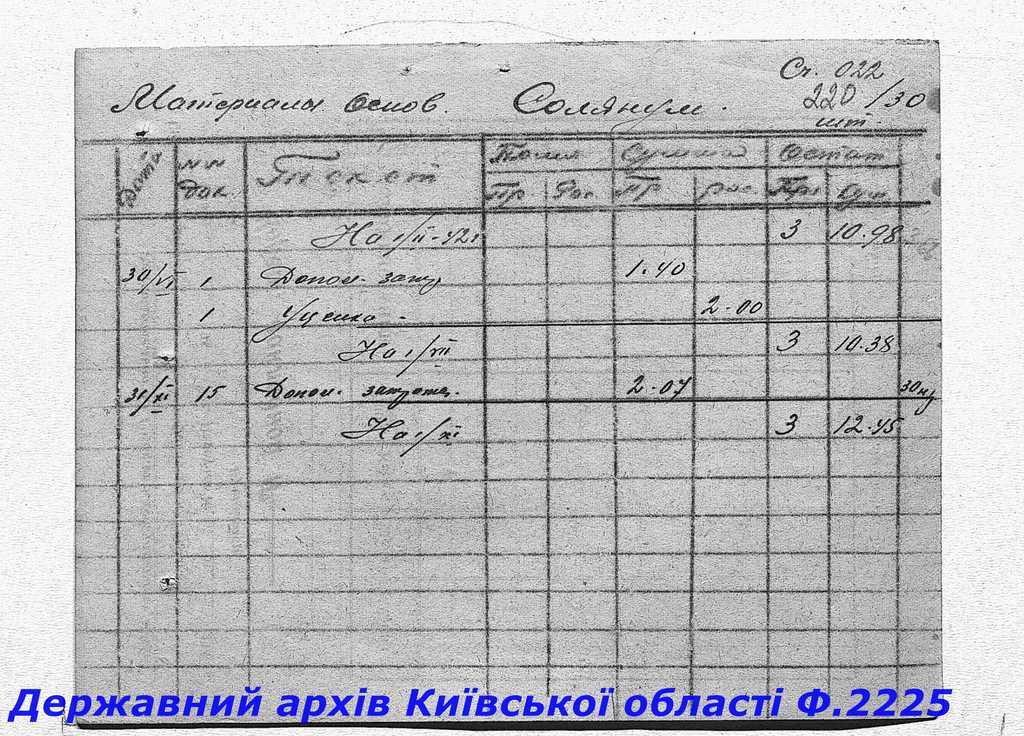 Сч. 022
Материалы основ. Солянум. 220/30
шт
Дата NN док. Текст Сумма Остат
Пр Рас Пр рас При Сум
На 1/II-42г 3 10.98
30/VI 1 Допол. затр 1.40
1 Уценка - 2.00
На 1/VII 3 10.38
31/XI 15 Допол. затрата. 2.07
На 1/XI 3 12.45
Державний архів Київської області Ф.2225